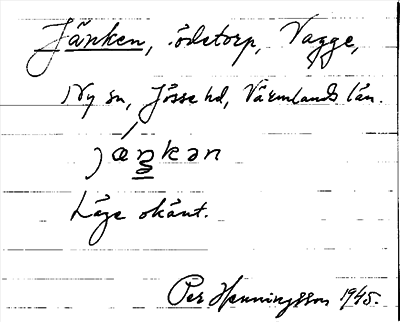 Jänken, ödetorp, Vagge,
Ny sn, Jösse hd, Värmlands län.
jæŋkən
Läge okänt.
Per Henningsson 1945.